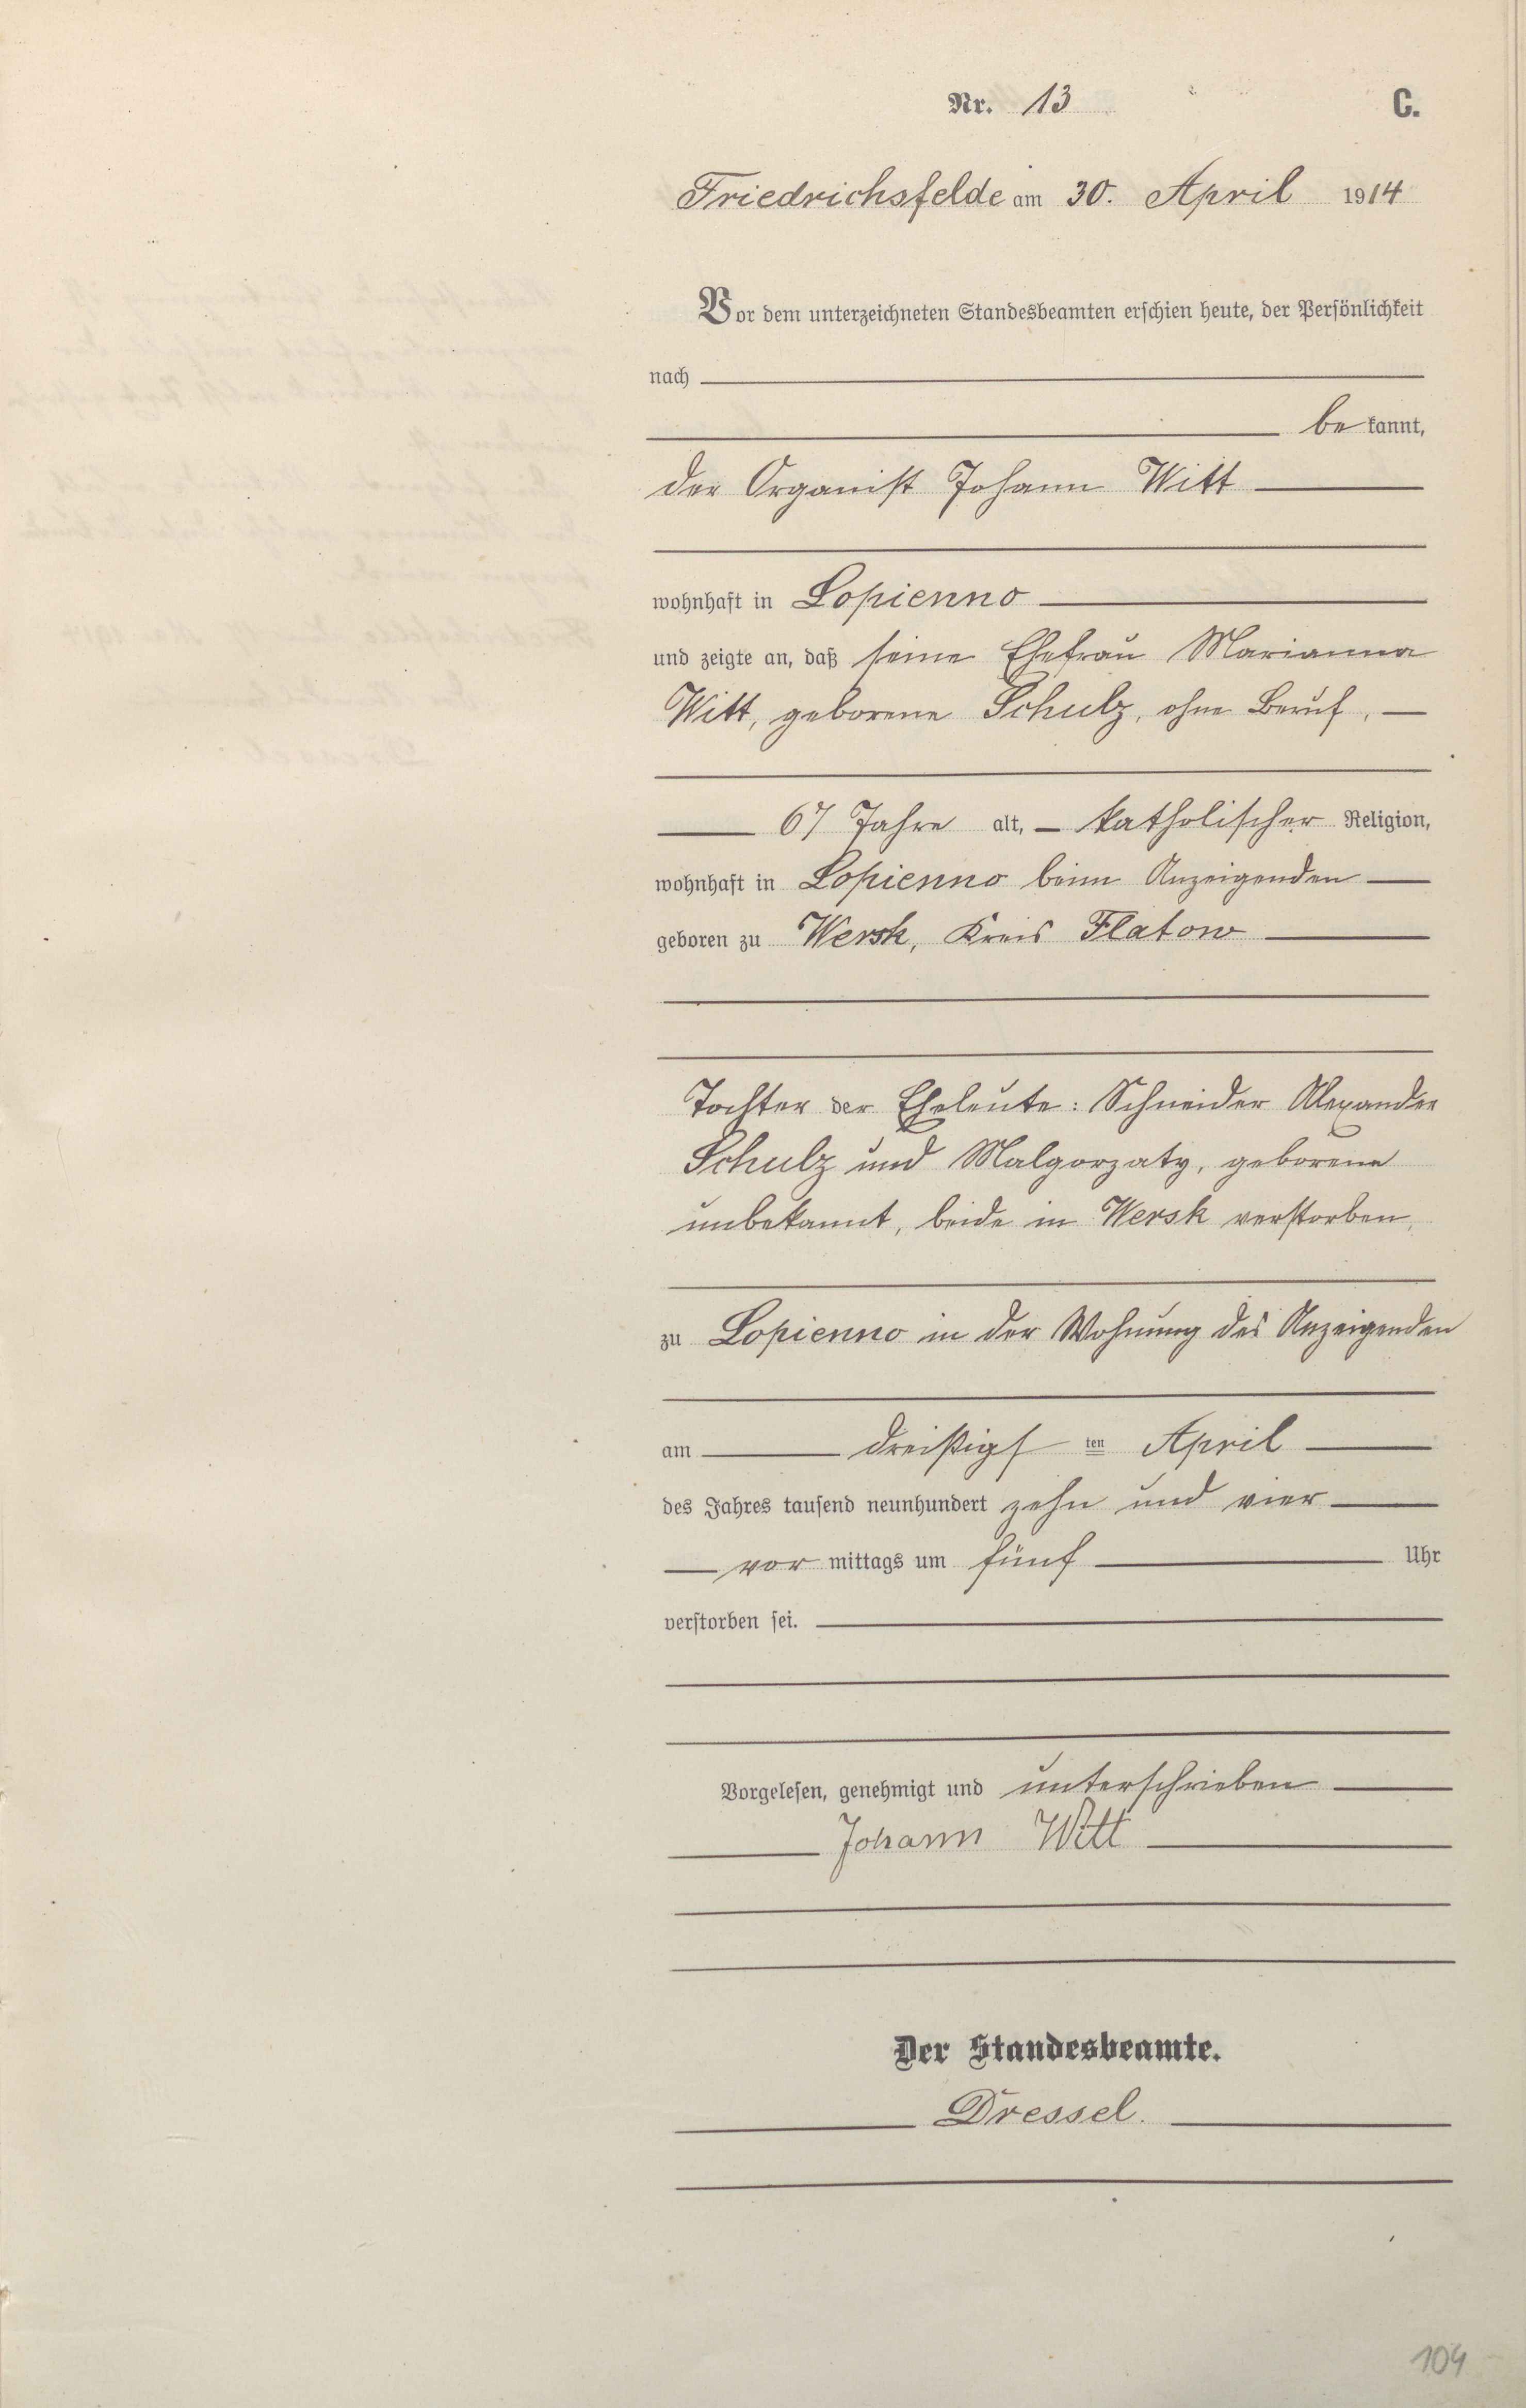 Nr. 13 C.
Friedrichsfelde am 30. April 1914
Vor dem unterzeichneten Standesbeamten erschien heute, der Persönlichkeit
nach
be kannt,
der Organist Johann Witt
wohnhaft in Lopienno
und zeigte an, daß seine Ehefrau Marianna
Witt, geborene Schulz, ohne Beruf,
67 Jahre alt, katholischer Religion,
wohnhaft in Lopienno beim Anzeigenden
geboren zu Wersk, Kreis Flatow
Tochter der Eheleute: Schneider Alexander
Schulz und Malgorzaty, geborene
unbekannt, beide in Wersk verstorben,
zu Lopienno in der Wohnung des Anzeigenden
am dreißigsten April
des Jahres tausend neunhundert zehn und vier
vor mittags um fünf Uhr
verstorben sei.
Vorgelesen, genehmigt und unterschrieben
Johann Witt
Der Standesbeamte.
Dressel.
104